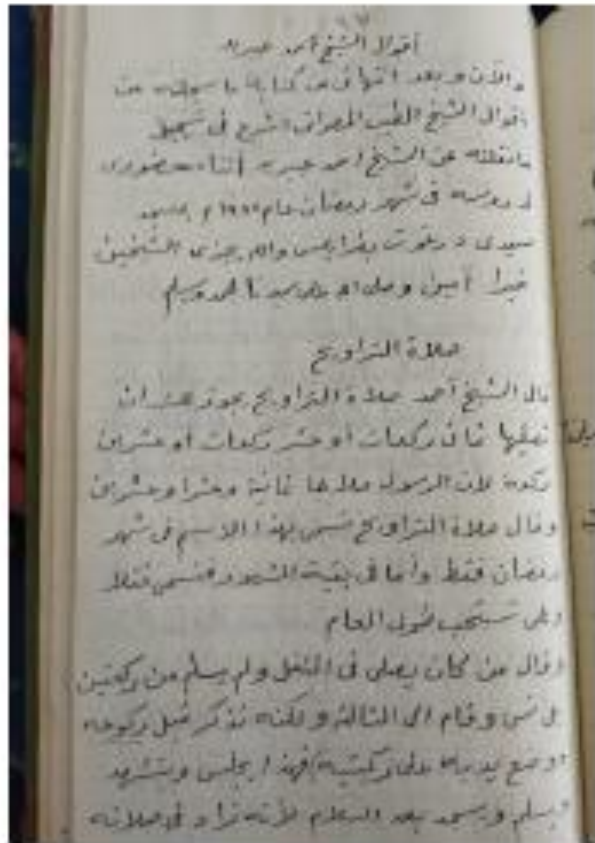 أقوال الشيخ أحمد
والآن وبعد انتهائى من كتابة ما سجلته من
أقوال الشيخ الطيب المصراتى اشرع فى تسجيل
ما نقلته عن الشيخ احمد أثناء حضورى
لدروسه فى شهر رمضان عام م بمسجد
سيدى درغوت بطرابلس والله يجزى الشيخين
خيرا آمين وصلى الله على سيدنا محمد وسلم
صلاة التراويح
قال الشيخ أحمد صلاة التراويح يجوز لك ان
تصليها ثمان ركعات أو عشر ركعات أو عشرين
ركعة لان الرسول صلاها ثمانية وعشرا وعشرين
وقال صلاة التراويح تسمى بهذا الاسم فى شهر
رمضان فقط وأما فى بقية الشهور فتسمى نفلا
وهى تستحب طول العام
وقال من كان يصلى فى النفل ولم يسلم من ركعتين
بل نسى وقام الى الثالثة ولكنه تذكر قبل ركوعه
(وضع يديه على ركبتيه) فهذا يجلس ويتشهد
ويسلم ويسجد بعد السلام لأنه زاد فى صلاته